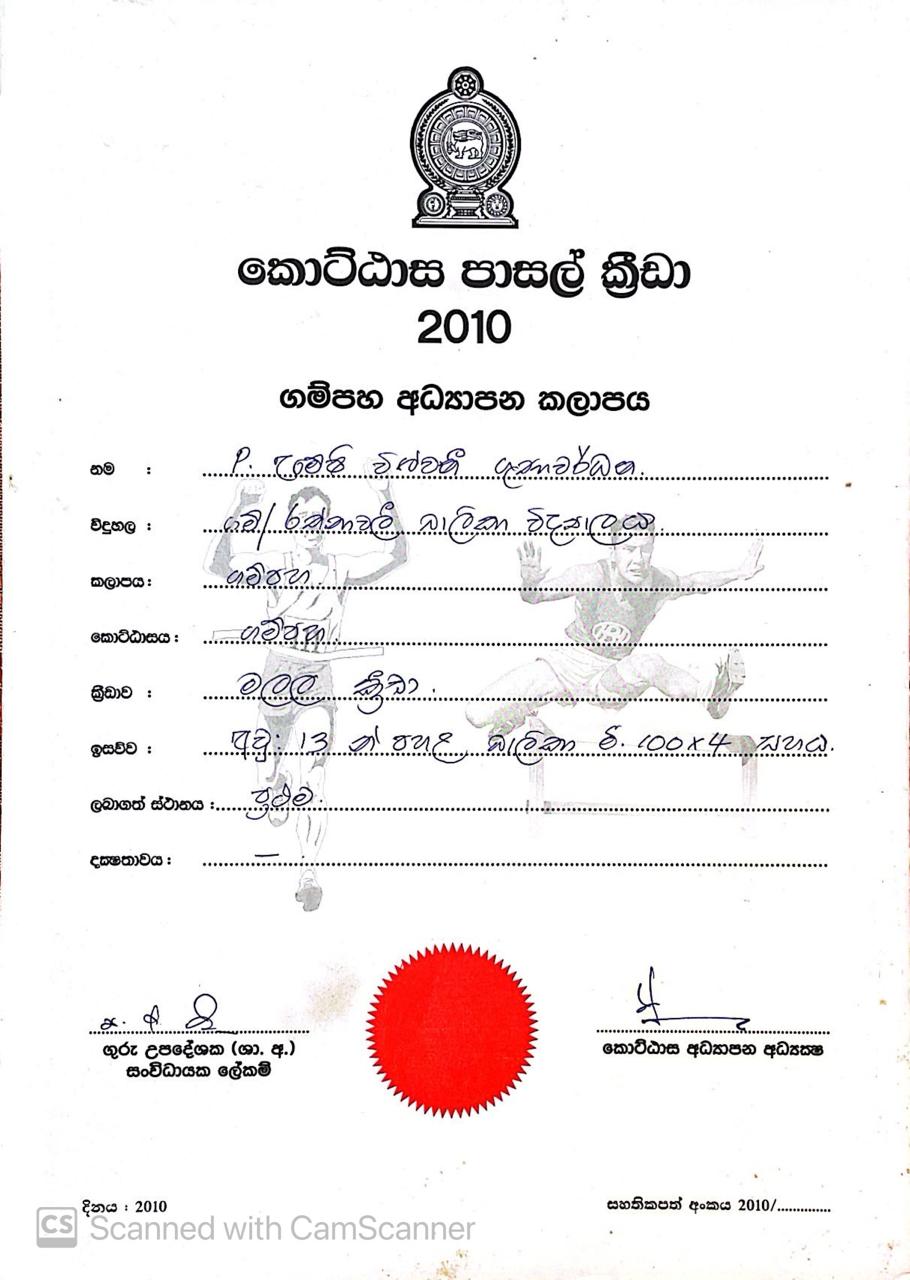 කොට්ඨාස පාසල් ක්‍රීඩා
2010
ගම්පහ අධ්‍යාපන කලාපය
නම : P. උමේෂි විශ්වනී ගුණවර්ධන.
විදුහල : ගම්/ රත්නාවලී බාලිකා විද්‍යාලය.
කලාපය : ගම්පහ.
කොට්ඨාසය : ගම්පහ
ක්‍රීඩාව : මලල ක්‍රීඩා.
ඉසව්ව : අවු: 13 න් පහළ බාලිකා මී. 100x4 සහය.
ලබාගත් ස්ථානය : ප්‍රථම.
දක්‍ෂතාවය : –
ගුරු උපදේශක (ශා. අ.)
සංවිධායක ලේකම්
කොට්ඨාස අධ්‍යාපන අධ්‍යක්‍ෂ
දිනය : 2010
සහතිකපත් අංකය 2010/..............
CS Scanned with CamScanner